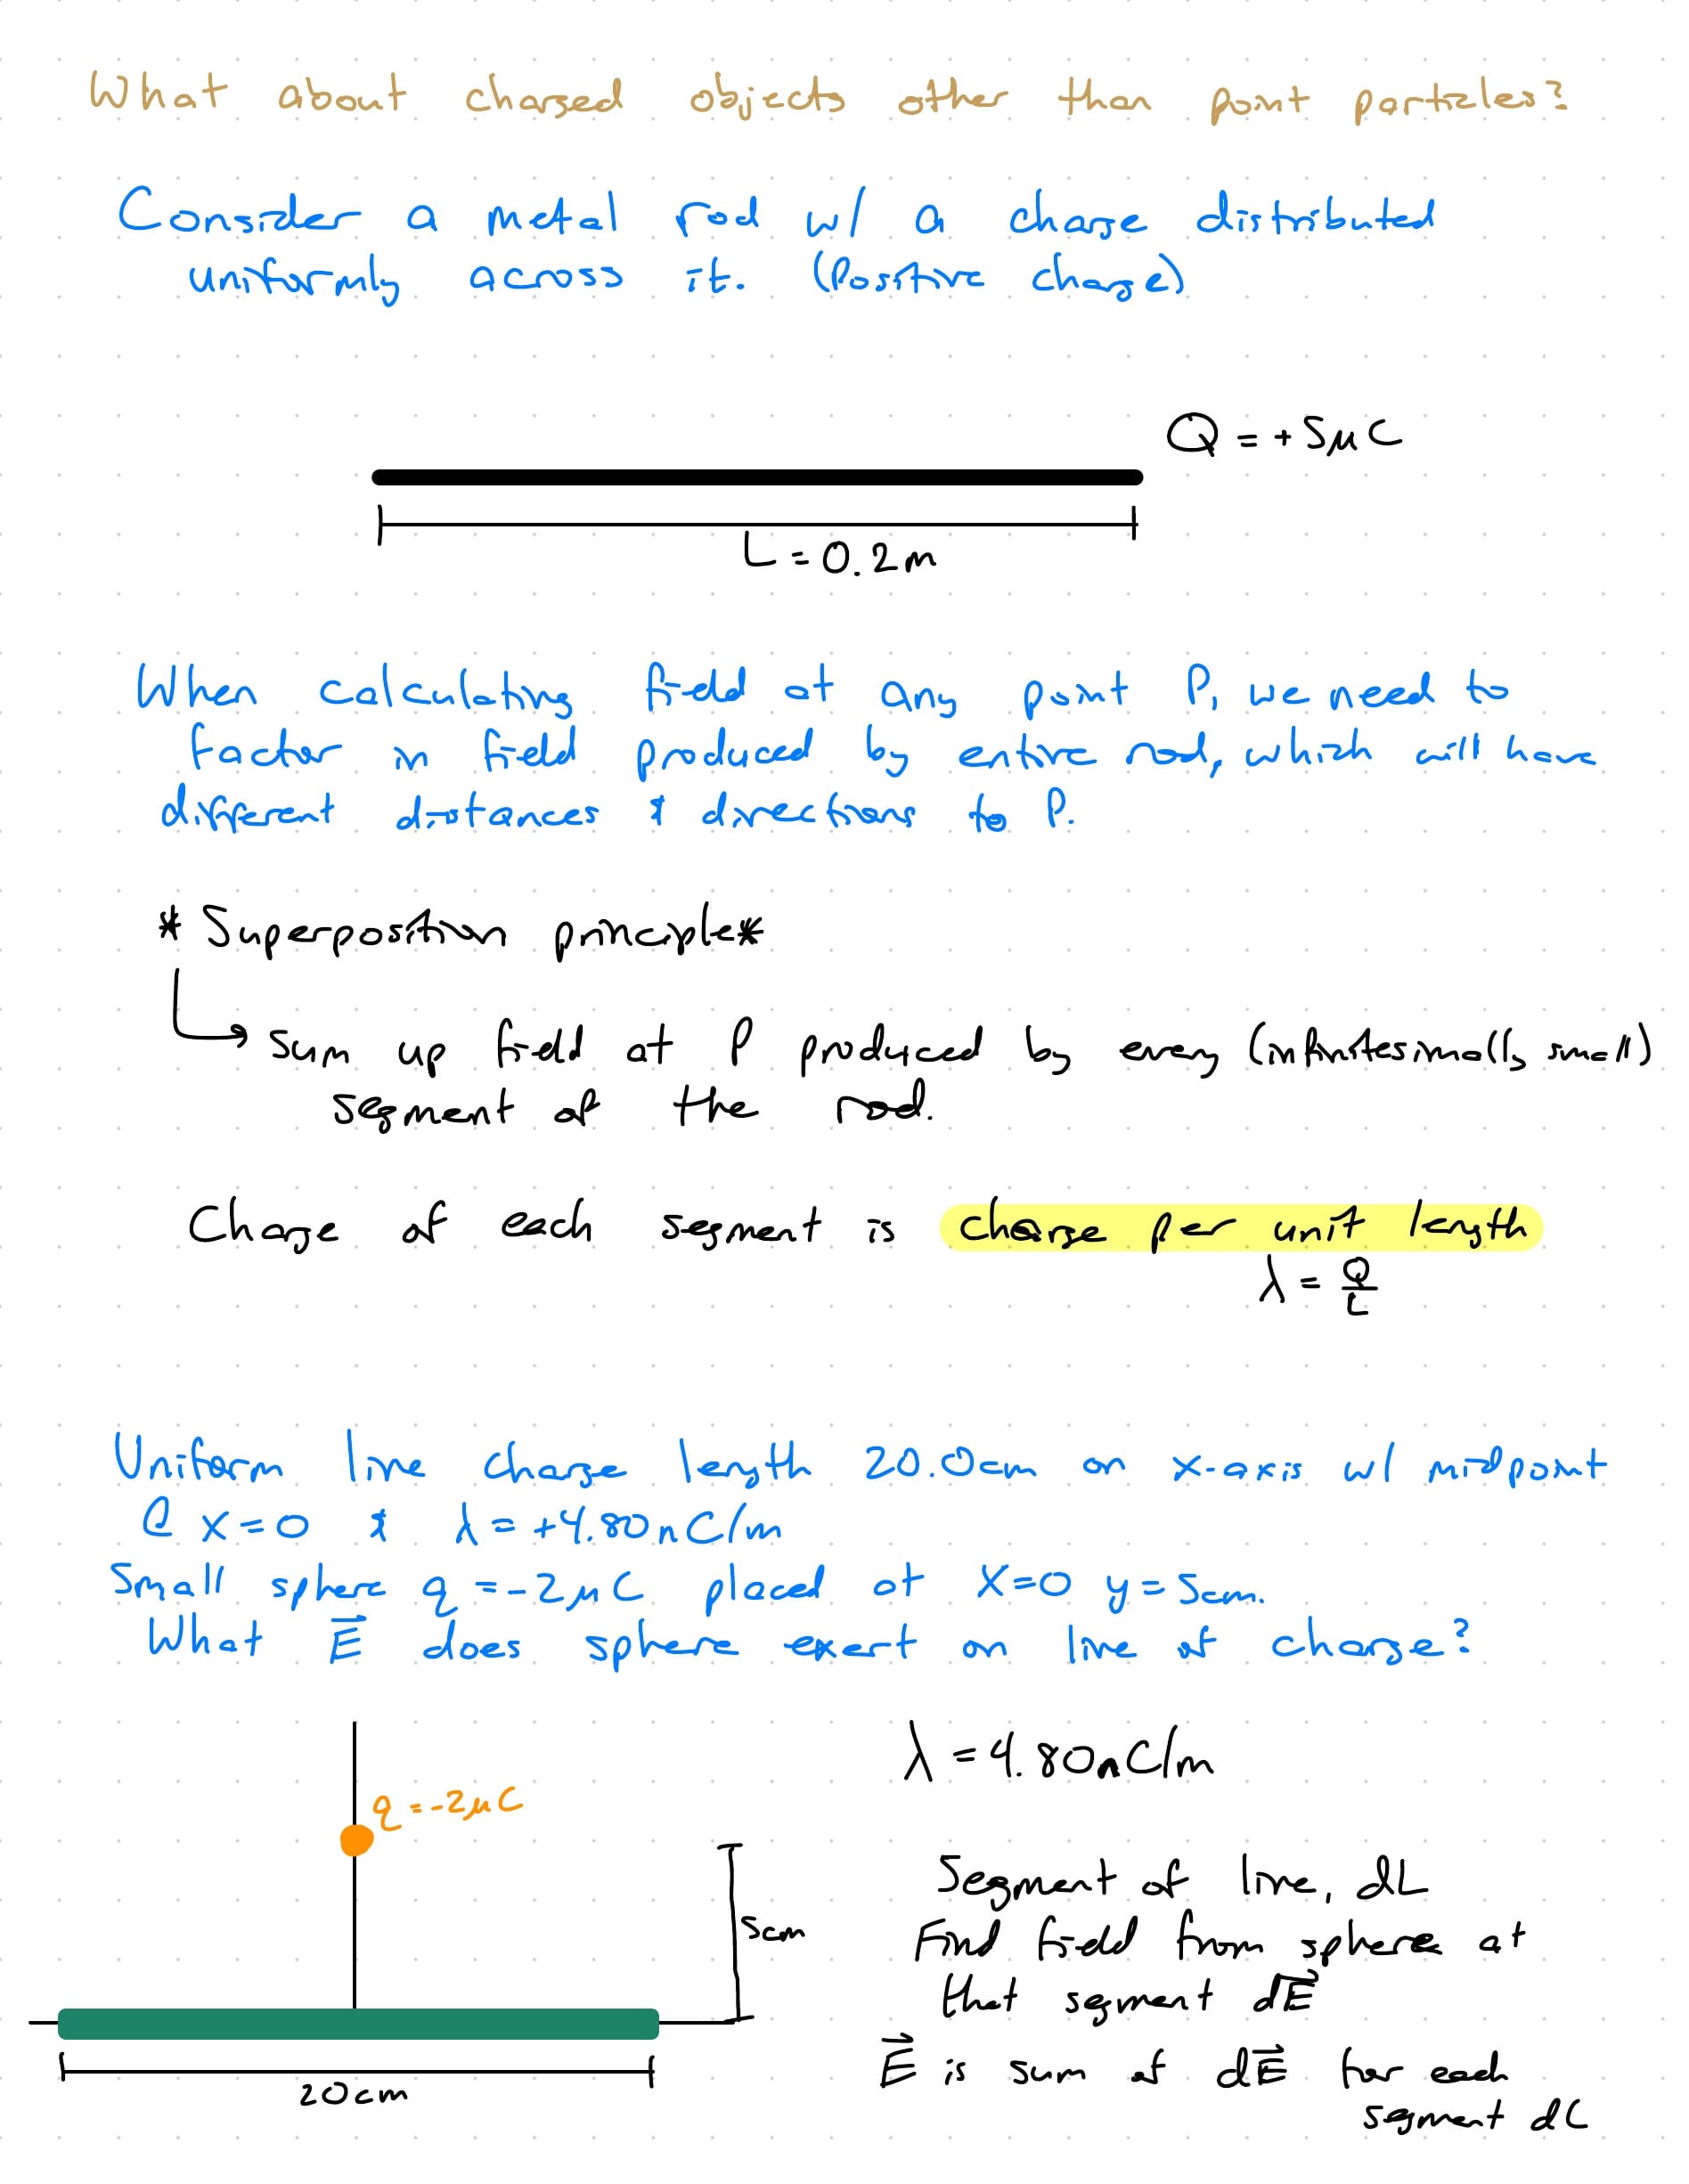 What about charged objects other than point particles?
Consider a metal rod w/ a charge distributed
uniformly across it. (Positive charge)
Q = +5μC
L = 0.2m
When calculating field at any point P, we need to
factor in field produced by entire rod, which will have
different distances & directions to P.
* Superposition principle *
sum up field at P produced by every (infinitesimally small)
segment of the rod.
Charge of each segment is charge per unit length
λ = Q/L
Uniform line charge length 20.0cm on x-axis w/ midpoint
@ x=0 & λ = +4.80nC/m
Small sphere q = -2μC placed at x=0 y=5cm.
What E⃗ does sphere exert on line of charge?
λ = 4.80nC/m
q = -2μC
Segment of line, dL
5cm
Find field from sphere at
that segment dE⃗
E⃗ is sum of dE⃗ for each
segment dL
20cm